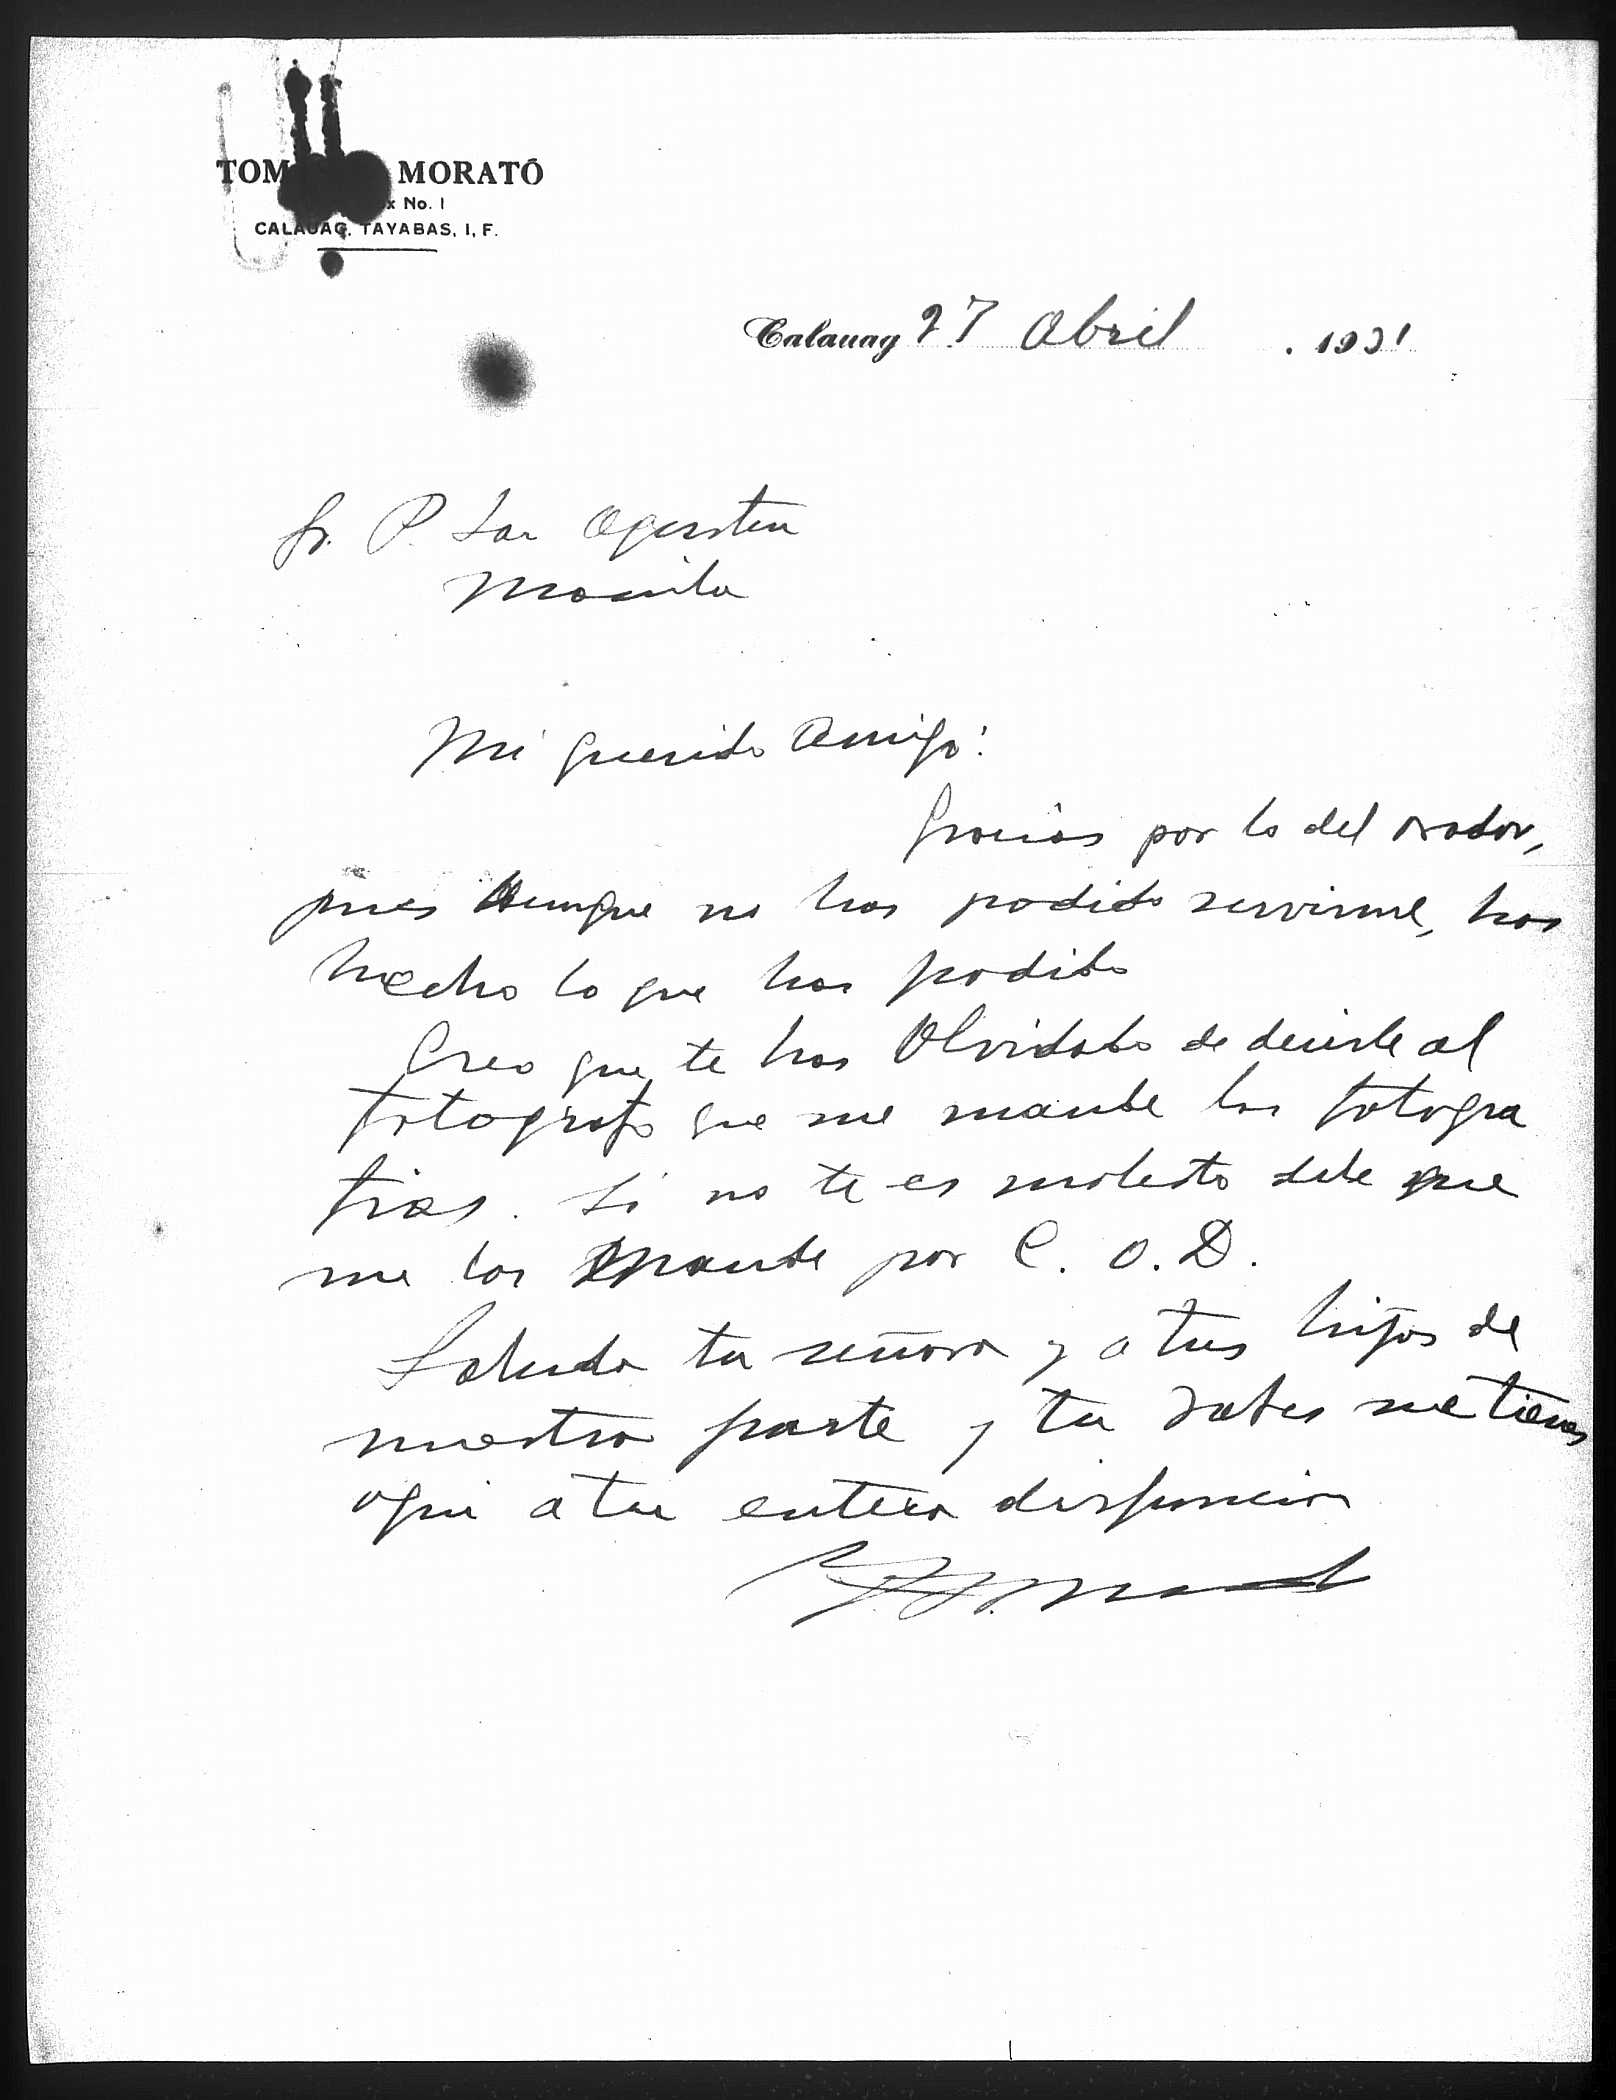 TOM MORATÓ
x No. 1
CALAUAG, TAYABAS, I, F.
Calauag 27 Abril . 1931
Sr. P. San Agustin
Manila
Mi querido Amigo:
Gracias por lo del orador,
pues Aunque no has podido servirme, has
hecho lo que has podido
Creo que te has Olvidado de decirle al
fotografo que me mande las fotogra
fias. Si no te es molesto dile que
me las mande por C. O. D.
Saluda tu señora y a tus hijos de
nuestra parte y tu sabes me tienes
aqui a tu entera disposicion